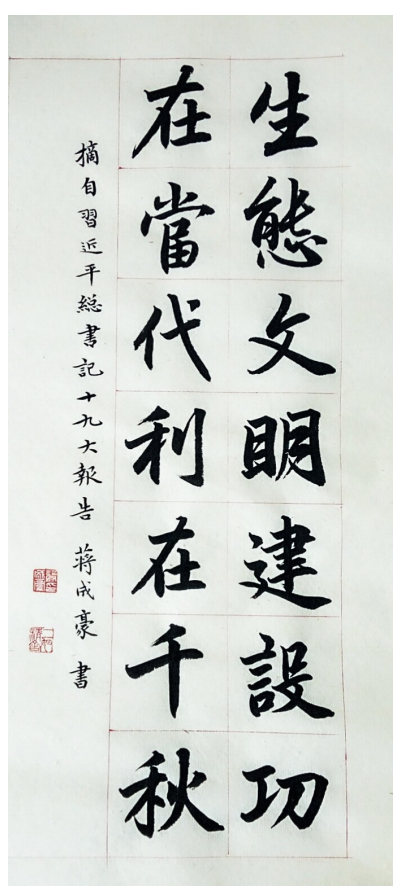 生態文明建設功
在當代利在千秋
摘自習近平総書記十九大報告 蔣成豪 書